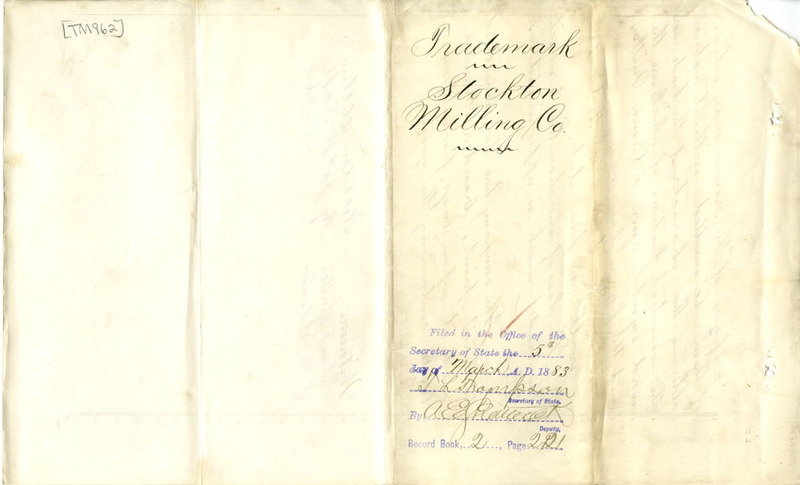 [TM962]
Trademark
Stockton
Milling Co.
Filed in the Office of the
Secretary of State the 5th
day of March A. D. 1883
T L Thompson
Secretary of State.
By
Deputy.
Record Book, 2, Page 221